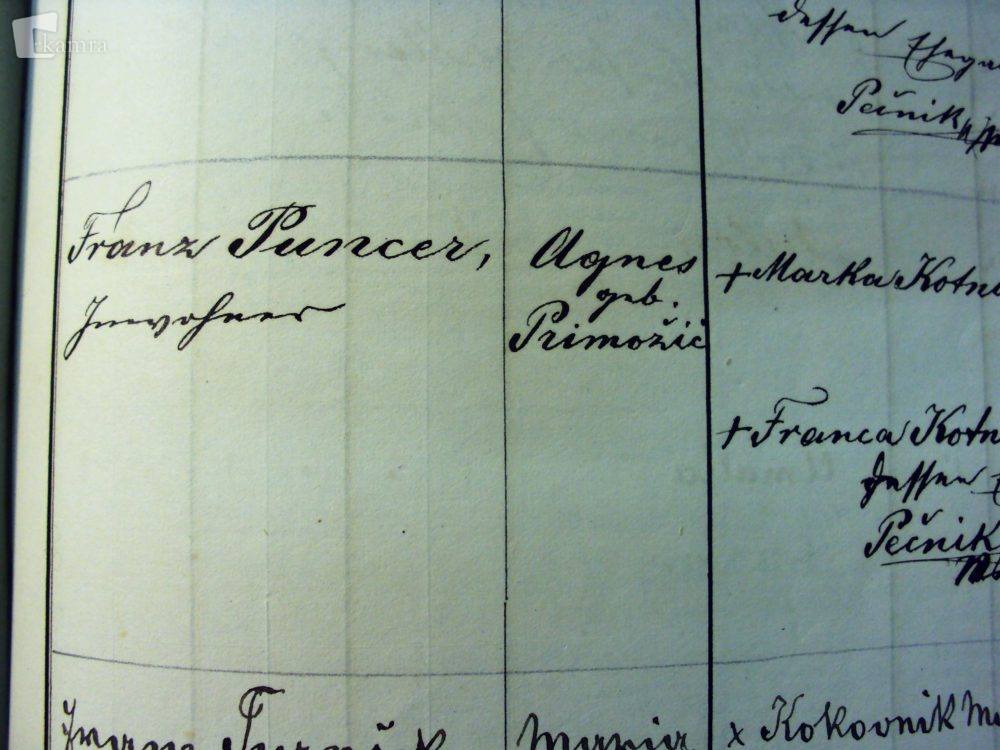 kamra
dessen
Pečnik
Franz Puncer,
Inwohner
Agnes
geb.
Primožič
+ Marka Kotni
+ Franca Kotn
dessen
Pečnik
Maria
x Kokovnik Ma